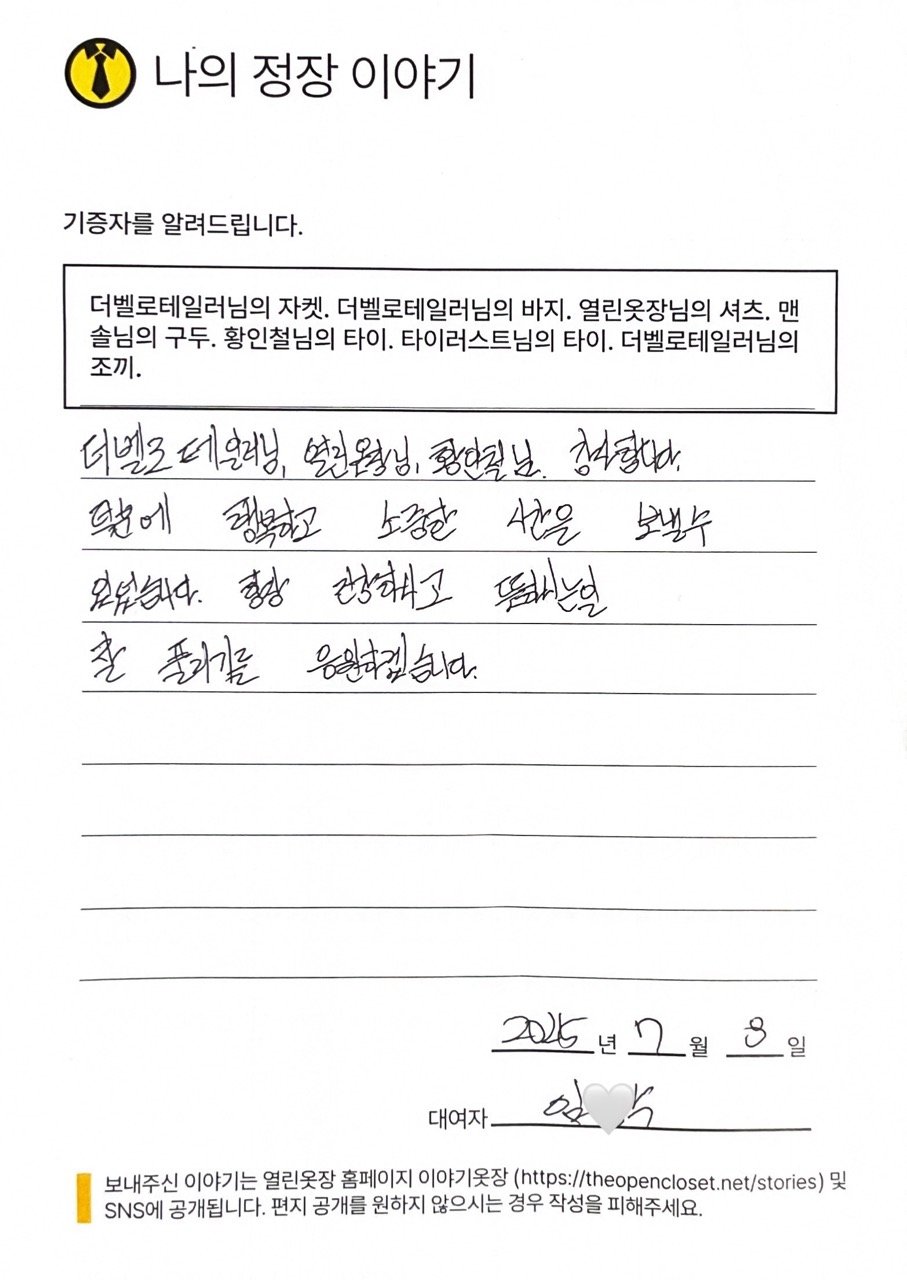 나의 정장 이야기
기증자를 알려드립니다.
더벨로테일러님의 자켓. 더벨로테일러님의 바지. 열린옷장님의 셔츠. 맨
솔님의 구두. 황인철님의 타이. 타이러스트님의 타이. 더벨로테일러님의
조끼.
더벨로 테일러님, 열린옷장님, 황인철님. 감사합니다.
덕분에 행복하고 소중한 시간을 보낼수
있었습니다. 항상 건강하시고 뜻하시는일
잘 풀리기를 응원하겠습니다.
2025 년 7 월 8 일
대여자 임
보내주신 이야기는 열린옷장 홈페이지 이야기옷장 (https://theopencloset.net/stories) 및
SNS에 공개됩니다. 편지 공개를 원하지 않으시는 경우 작성을 피해주세요.